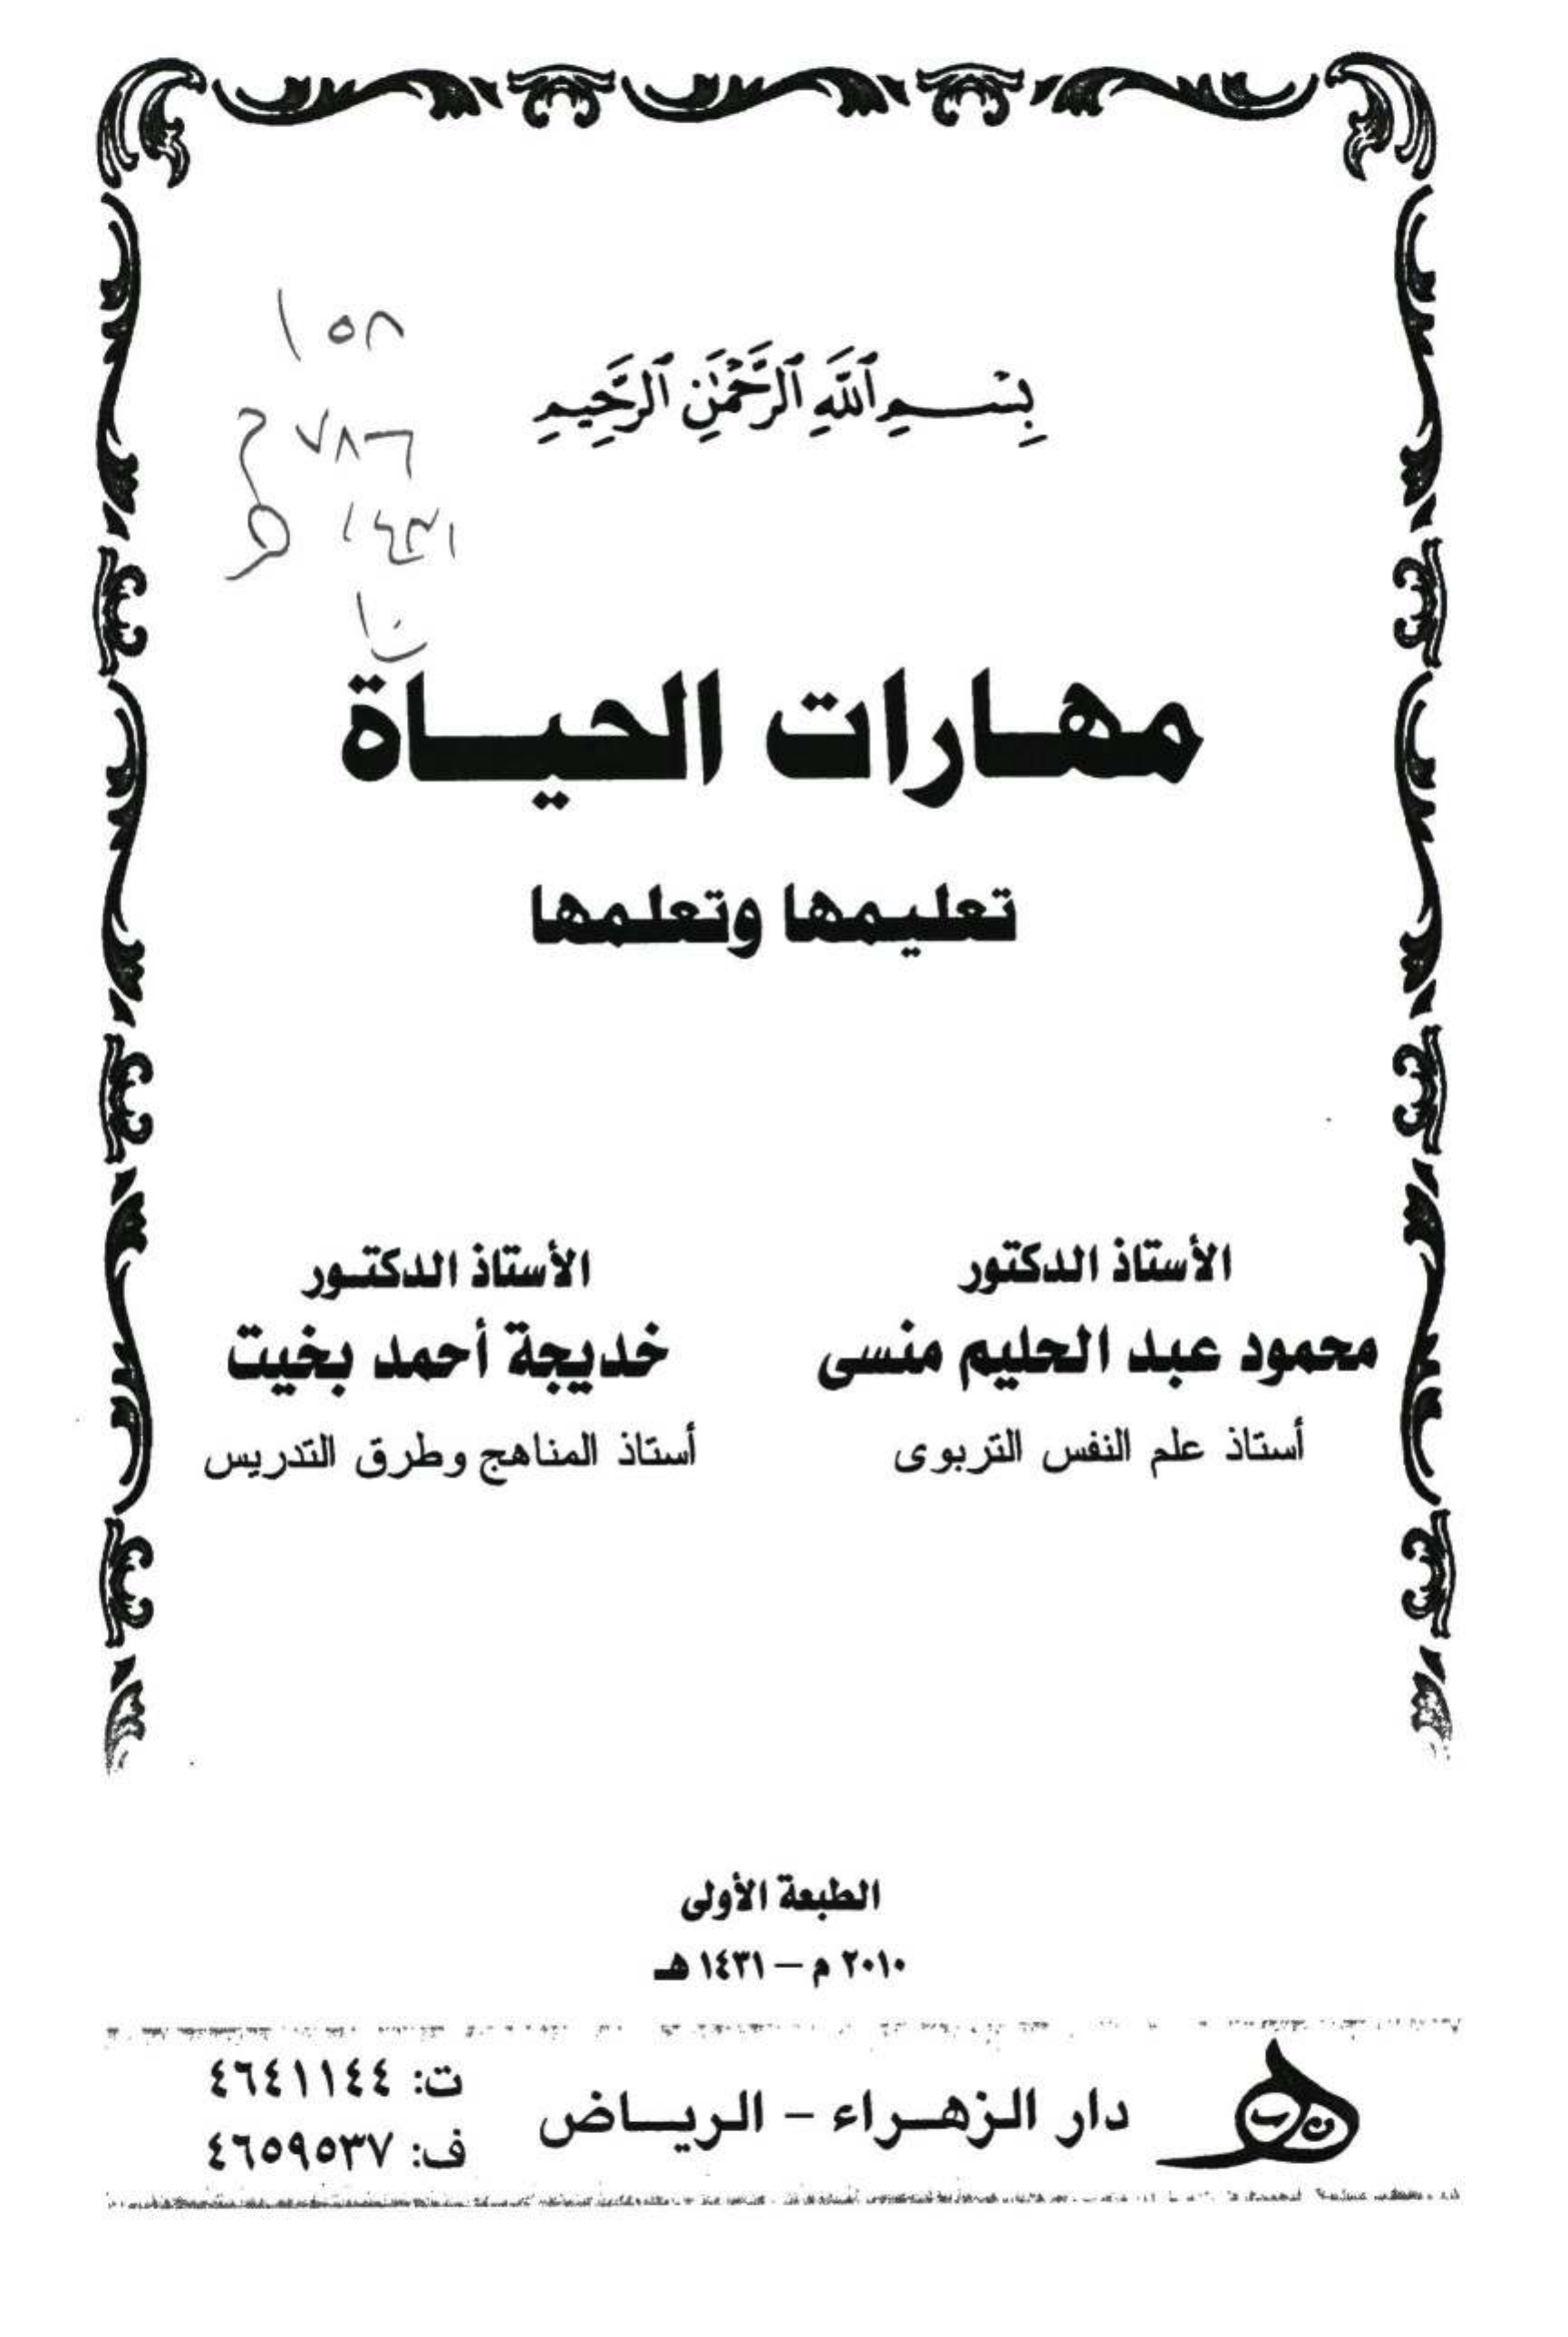 ١٥٨
م ٧٨٦
١٤٣١ هـ
بِسْمِ ٱللَّهِ ٱلرَّحْمَٰنِ ٱلرَّحِيمِ
مهارات الحياة
تعليمها وتعلمها
الأستاذ الدكتور
محمود عبد الحليم منسى
أستاذ علم النفس التربوى
الأستاذ الدكتور
خديجة أحمد بخيت
أستاذ المناهج وطرق التدريس
الطبعة الأولى
٢٠١٠ م – ١٤٣١ هـ
دار الزهراء – الرياض
ت: ٤٦٤١١٤٤
ف: ٤٦٥٩٥٣٧